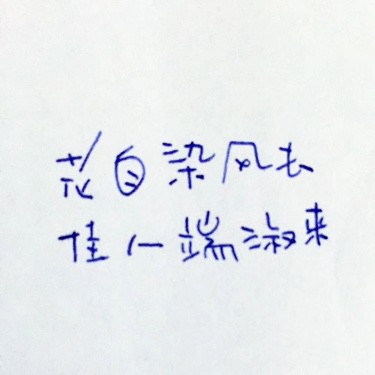 花自染风去
佳人端淑来